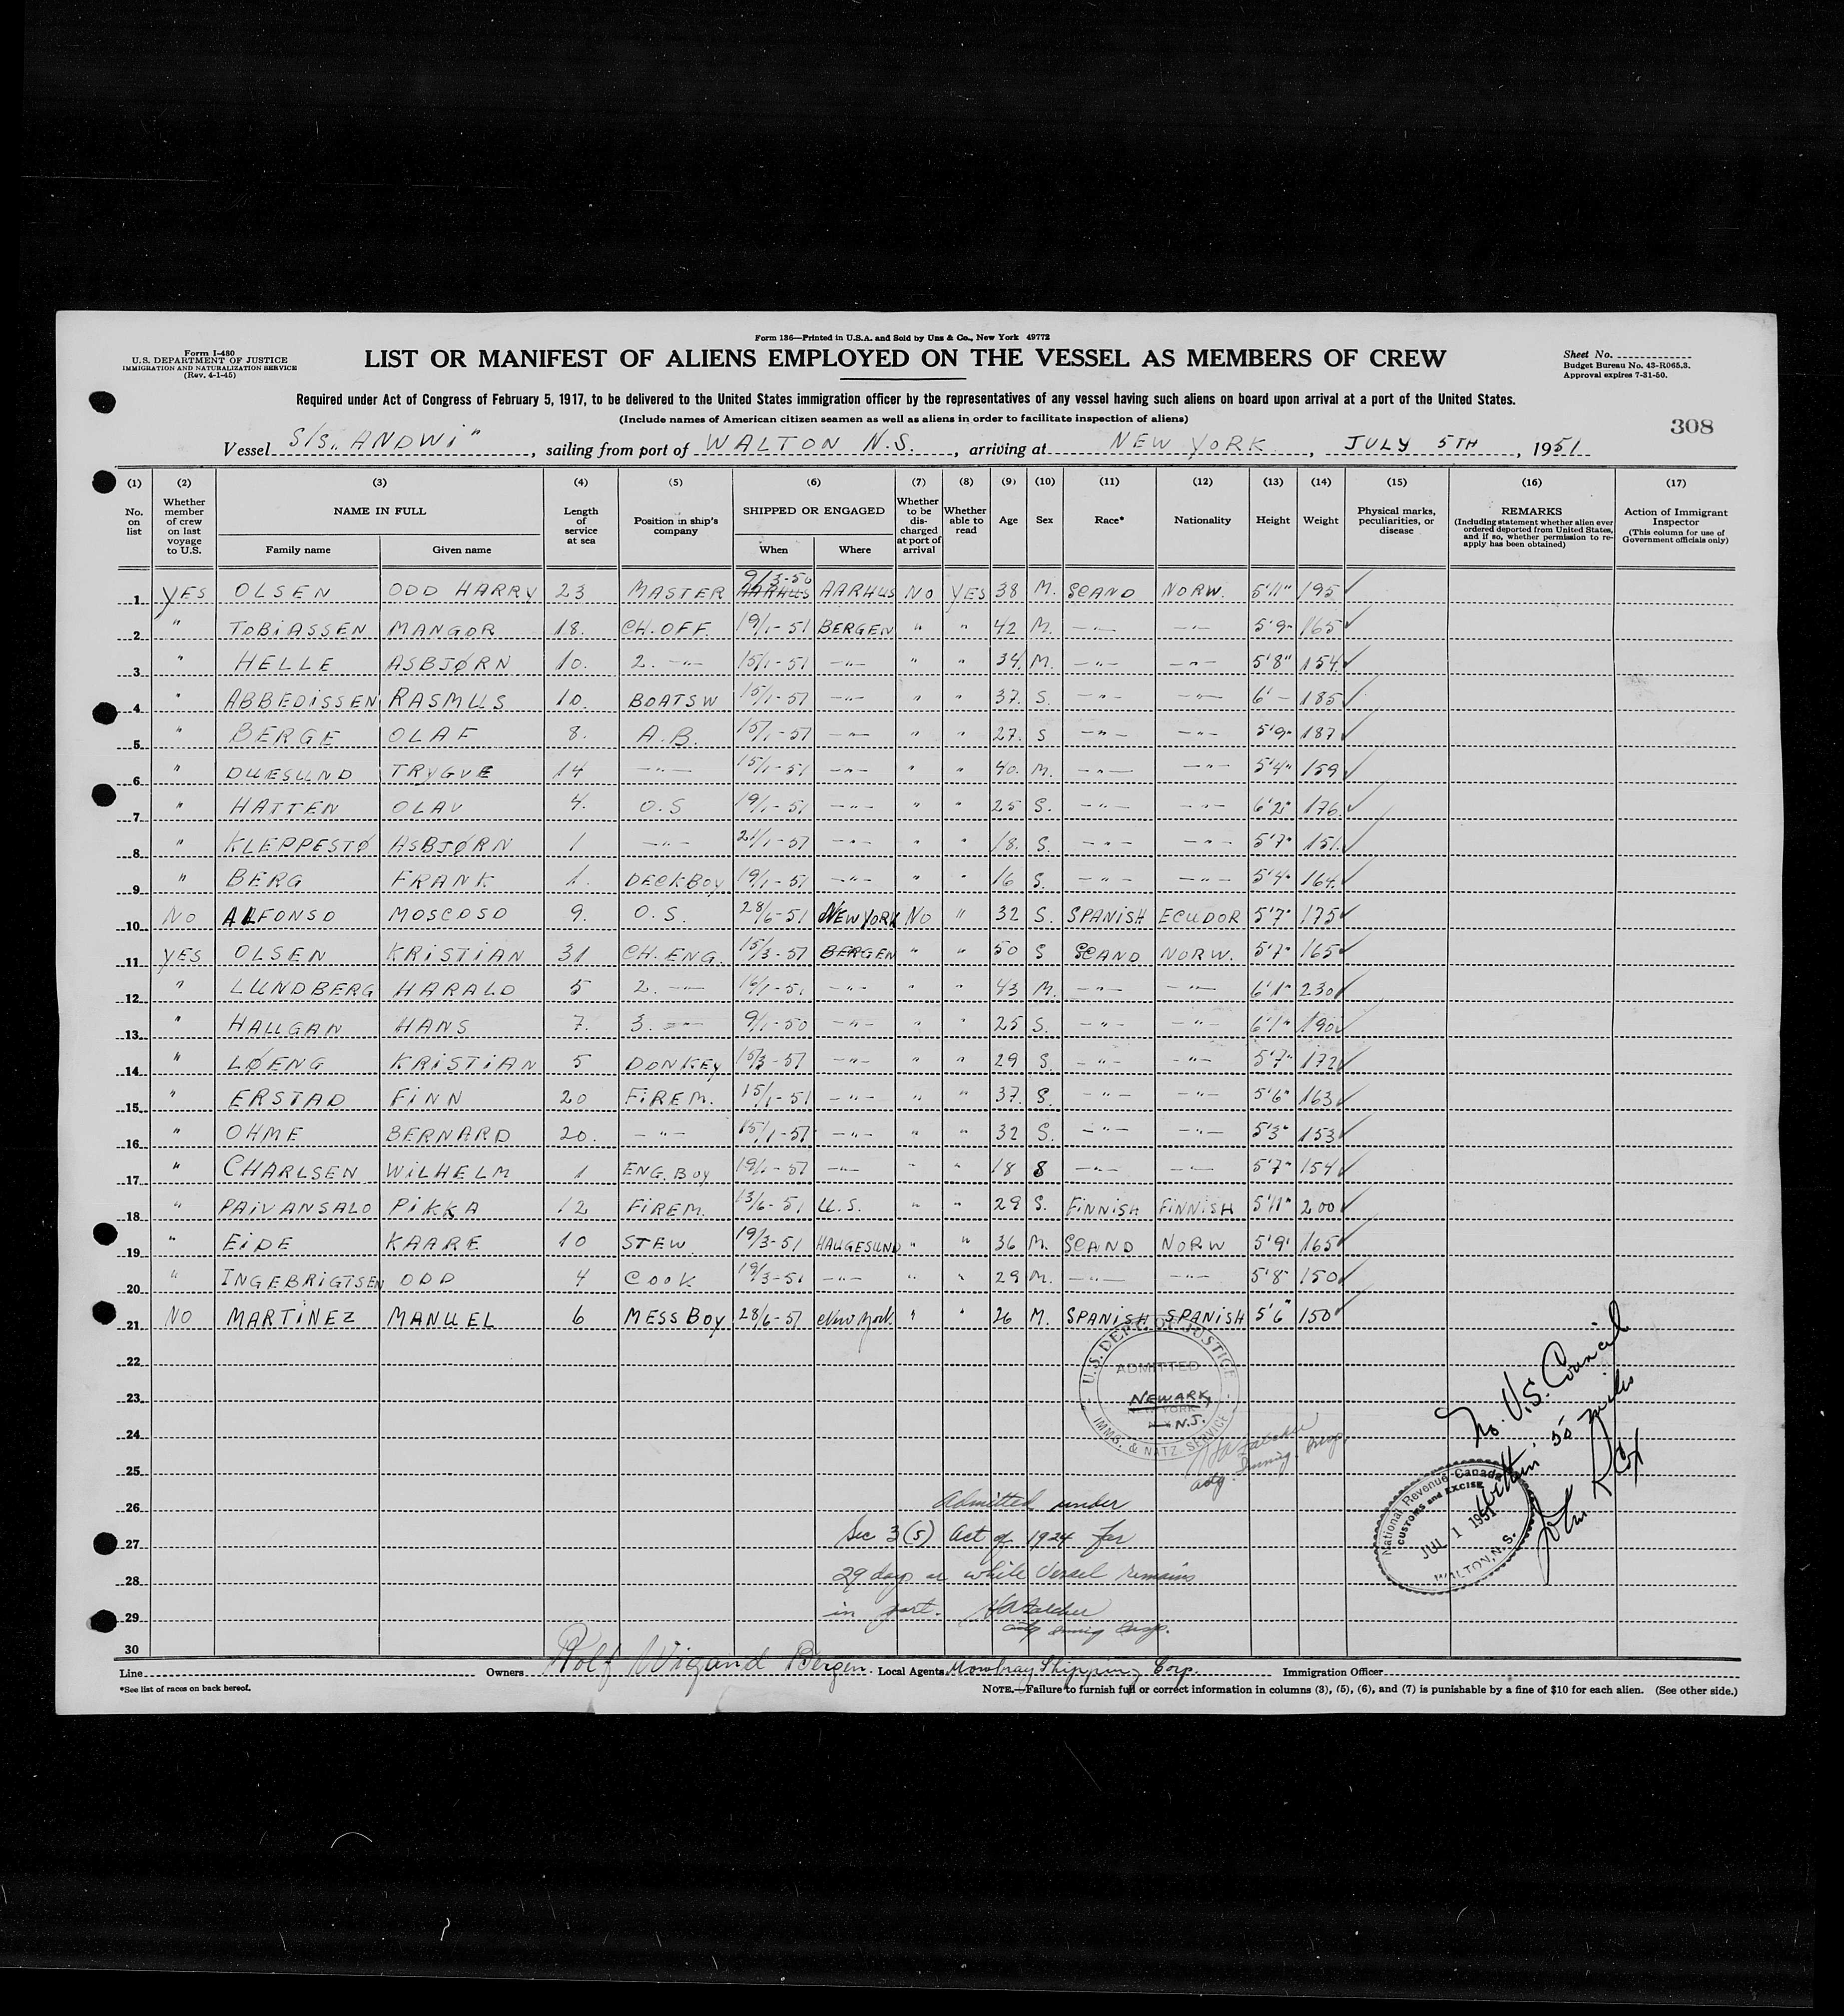 Form 136—Printed in U.S.A. and Sold by Uns & Co., New York 49772
Form I-480
U.S. DEPARTMENT OF JUSTICE
IMMIGRATION AND NATURALIZATION SERVICE
(Rev. 4-1-45)
LIST OR MANIFEST OF ALIENS EMPLOYED ON THE VESSEL AS MEMBERS OF CREW
Sheet No.
Budget Bureau No. 43-R065.3.
Approval expires 7-31-50.
Required under Act of Congress of February 5, 1917, to be delivered to the United States immigration officer by the representatives of any vessel having such aliens on board upon arrival at a port of the United States.
(Include names of American citizen seamen as well as aliens in order to facilitate inspection of aliens)
308
Vessel S/S „ANDWi" , sailing from port of WALTON N.S. , arriving at NEW YORK , JULY 5TH , 1951
(1) (2) (3) (4) (5) (6) (7) (8) (9) (10) (11) (12) (13) (14) (15) (16) (17)
No. on list
Whether member of crew on last voyage to U.S.
NAME IN FULL
Family name
Given name
Length of service at sea
Position in ship's company
SHIPPED OR ENGAGED
When
Where
Whether to be discharged at port of arrival
Whether able to read
Age
Sex
Race*
Nationality
Height
Weight
Physical marks, peculiarities, or disease
REMARKS
(Including statement whether alien ever ordered deported from United States, and if so, whether permission to reapply has been obtained)
Action of Immigrant Inspector
(This column for use of Government officials only)
1 YES OLSEN ODD HARRY 23 MASTER 9/3-50 AARHUS AARHUS NO YES 38 M. SCAND NORW. 5'11" 195 ✓
2 " TOBIASSEN MANGOR 18. CH. OFF. 19/1-51 BERGEN " " 42 M. —"— —"— 5'9" 165 ✓
3 " HELLE ASBJØRN 10. 2. —"— 15/1-51 —"— " " 34. M. —"— —"— 5'8" 154 ✓
4 " ABBEDISSEN RASMUS 10. BOATSW 15/1-51 —"— " " 37. S. —"— —"— 6' — 185 ✓
5 " BERGE OLAF 8. A.B. 15/1-51 —"— " " 27. S —"— —"— 5'9" 187 ✓
6 " DUESUND TRYGVE 14 —"— 15/1-51 —"— " " 40. M. —"— —"— 5'4" 159 ✓
7 " HATTEN OLAV 4. O.S 19/1-51 —"— " " 25 S. —"— —"— 6'2" 176 ✓
8 " KLEPPESTØ ASBJØRN 1 —"— 21/1-51 —"— " " 18. S. —"— —"— 5'7" 151 ✓
9 " BERG FRANK 1. DECKBOY 19/1-51 —"— " " 16 S. —"— —"— 5'4" 164 ✓
10 NO ALFONSO MOSCOSO 9. O.S. 28/6-51 NEW YORK NO " 32 S. SPANISH ECUDOR 5'7" 175 ✓
11 YES OLSEN KRISTIAN 31 CH. ENG. 15/3-51 BERGEN " " 50 S SCAND NORW. 5'7" 165 ✓
12 " LUNDBERG HARALD 5 2. —"— 16/1-51 —"— " " 43 M. —"— —"— 6'1" 230 ✓
13 " HAUGAN HANS 7. 3. —"— 9/1-50 —"— " " 25 S. —"— —"— 6'1" 190 ✓
14 " LØENG KRISTIAN 5 DONKEY 15/3-51 —"— " " 29 S. —"— —"— 5'7" 172 ✓
15 " ERSTAD FINN 20 FIREM. 15/1-51 —"— " " 37. S. —"— —"— 5'6" 163 ✓
16 " OHME BERNARD 20. —"— 15/1-51 —"— " " 32 S. —"— —"— 5'3" 153 ✓
17 " CHARLSEN WILHELM 1 ENG. BOY 19/1-51 —"— " " 18 S —"— —"— 5'7" 154 ✓
18 " PAIVANSALO PIKKA 12 FIREM. 13/6-51 U.S. " " 29 S. FINNISH FINNISH 5'11" 200 ✓
19 " EIDE KAARE 10 STEW. 19/3-51 HAUGESUND " " 36 M. SCAND NORW 5'9" 165 ✓
20 " INGEBRIGTSEN ODD 4 COOK 19/3-51 —"— " " 29 M. —"— —"— 5'8" 150 ✓
21 NO MARTINEZ MANUEL 6 MESS BOY 28/6-51 New York " " 26 M. SPANISH SPANISH 5'6" 150 ✓
22
23
24
25
26
27
28
29
30
U.S. DEPT. OF JUSTICE
ADMITTED
NEWARK,
NEW YORK
N.J.
IMMG. & NATZ. SERVICE
actg. Immig. Insp.
No. U.S. Council
within 50 miles
John R Cox
National Revenue Canada
CUSTOMS and EXCISE
JUL 1 1951
WALTON, N.S.
Admitted under
Sec 3(5) Act of 1924 for
29 days or while Vessel remains
in port.
actg Immig Insp.
Line
Owners Rolf Wigand Bergen.
Local Agents Mowbray Shipping Corp.
Immigration Officer
*See list of races on back hereof.
NOTE.—Failure to furnish full or correct information in columns (3), (5), (6), and (7) is punishable by a fine of $10 for each alien. (See other side.)